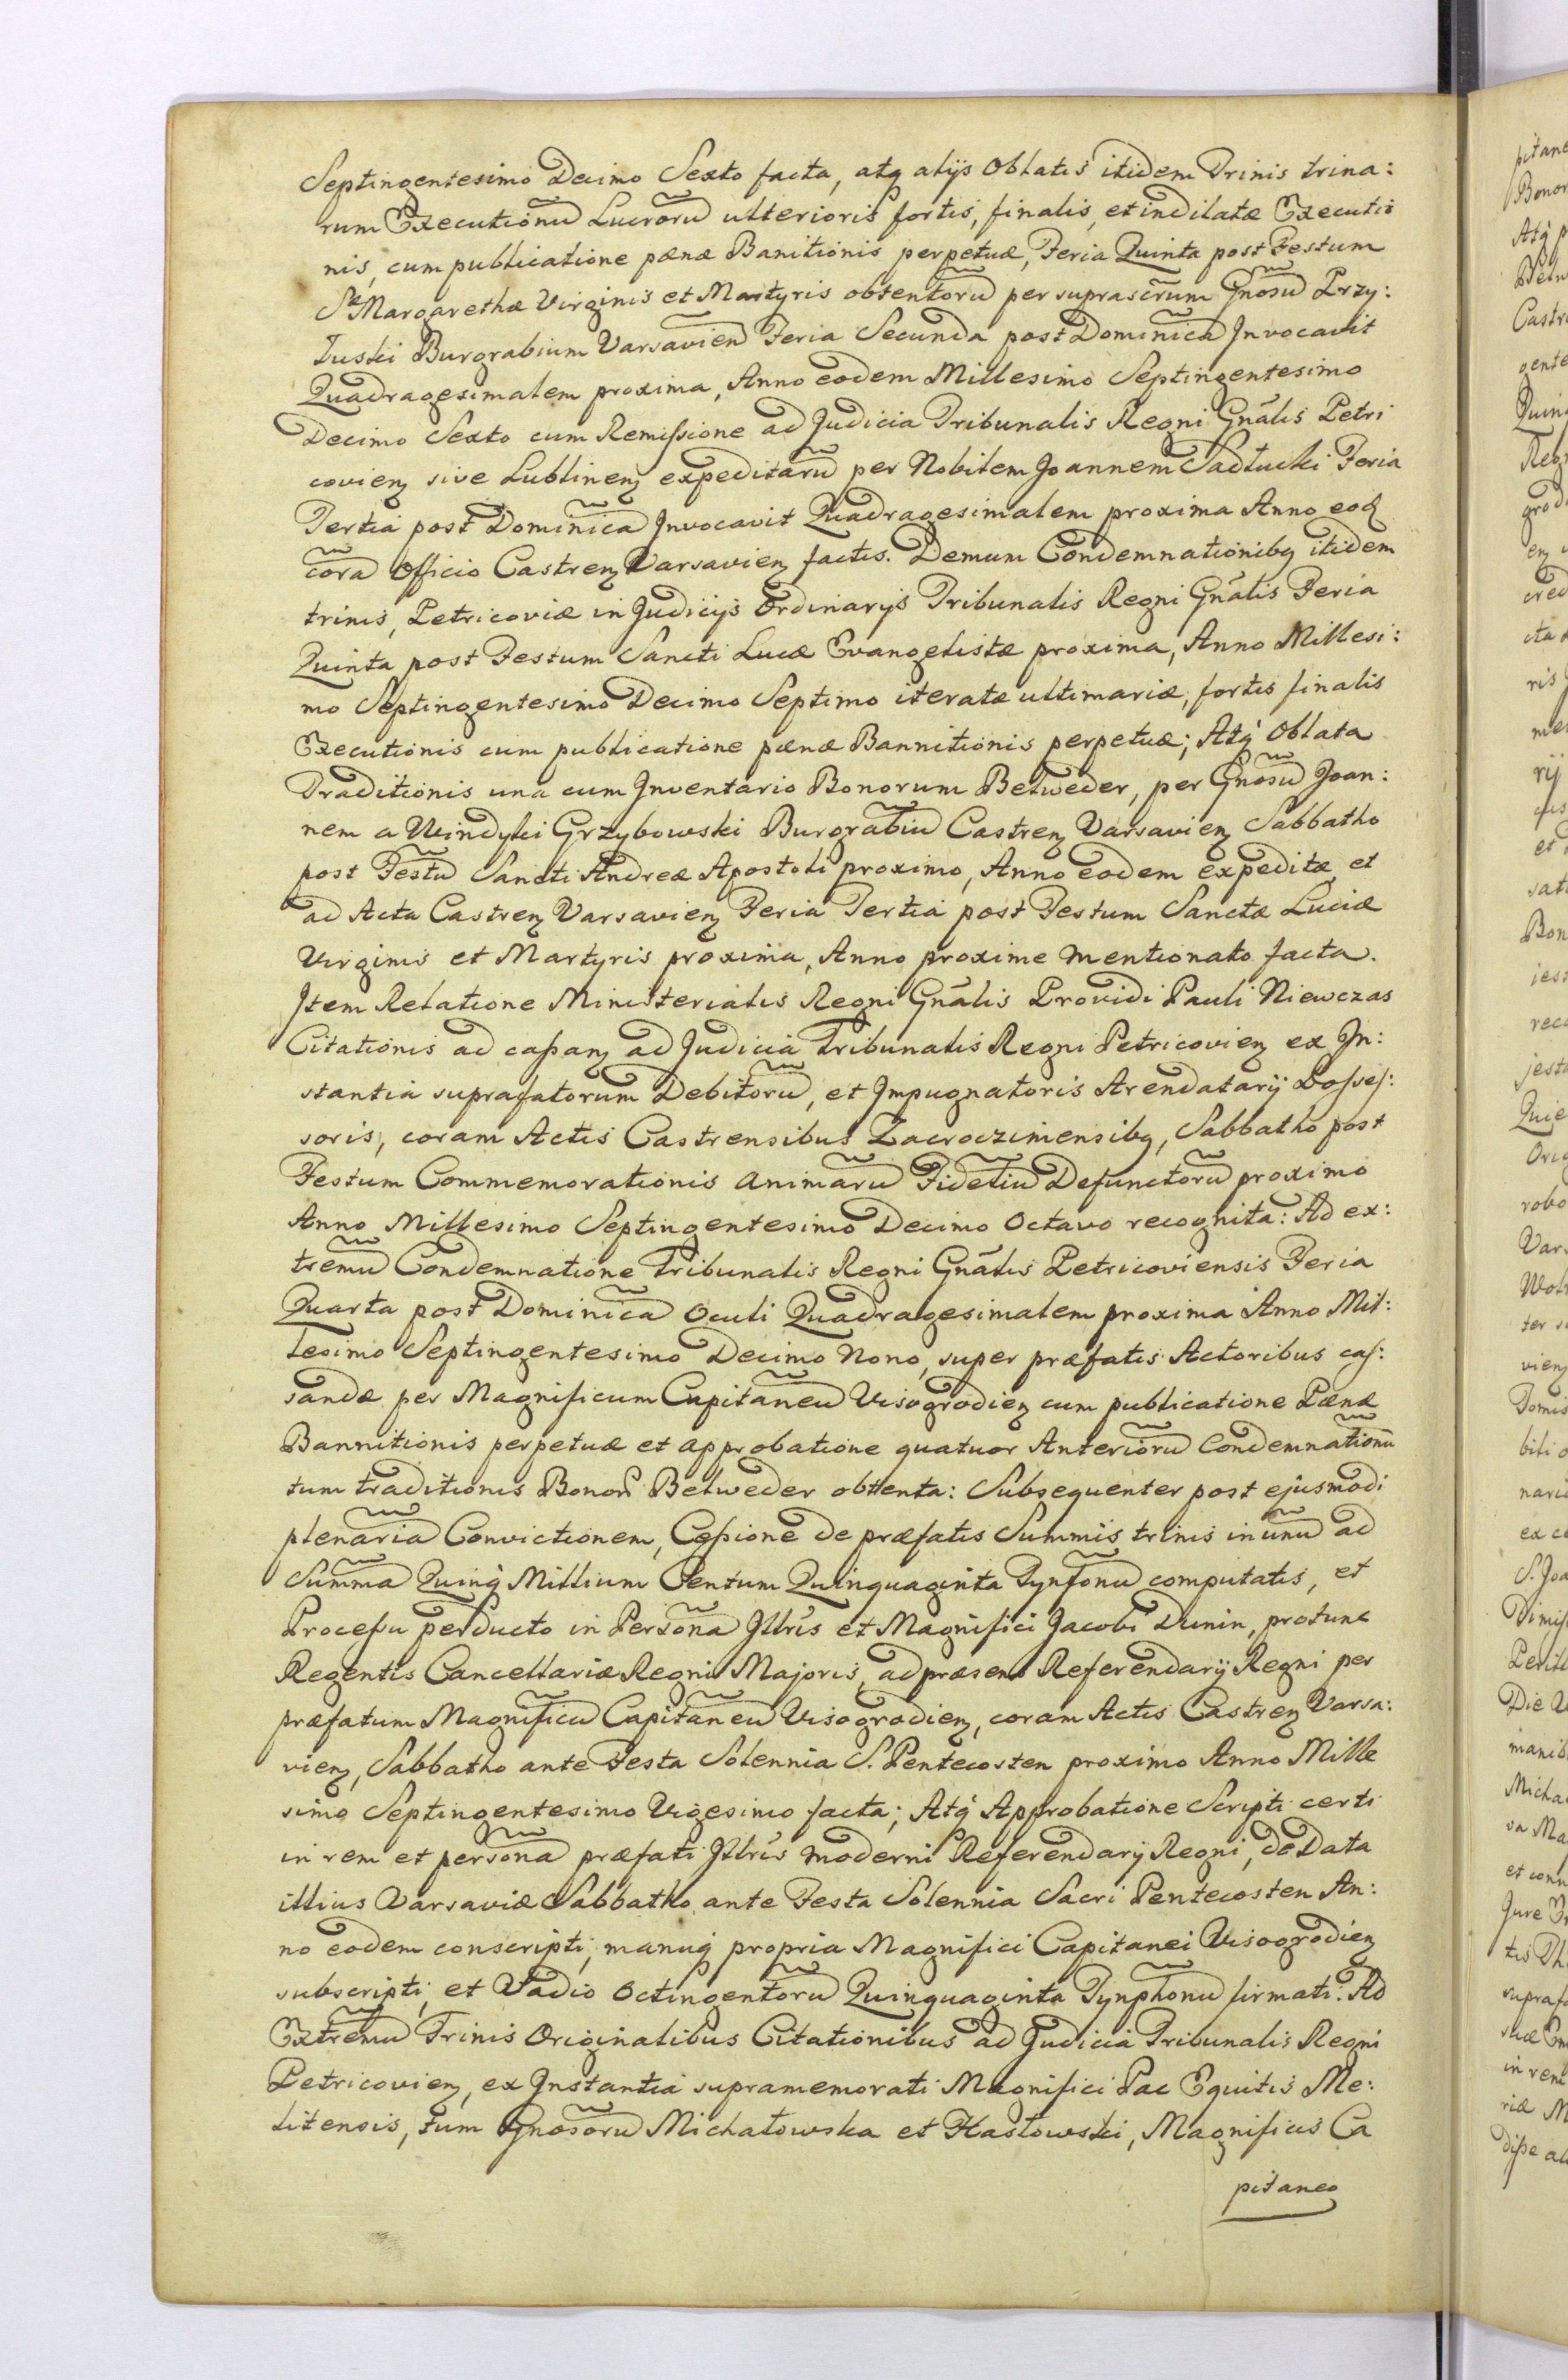 Septingentesimo Decimo Sexto facta, atq alijs Oblatis itidem Trinis trina:
rum Executionũ Lucrorũ ulterioris fortis, finalis, et indilatæ Executio
nis, cum publicatione pænæ Banitionis perpetuæ, Feria Quinta post Festum
Sæ Margarethæ Virginis et Martyris obtentorũ per suprascr̃um Gnosũ Przy:
łuski Burgrabium Varsavieñ Feria Secunda post Dominicã Invocavit
Quadragesimalem proxima, Anno eodem Millesimo Septingentesimo
Decimo Sexto cum Remissione ad Judicia Tribunalis Regni Gñalis Petri
covienz sive Lublinenz expeditarũ per Nobilem Joannem Sadłucki Feria
Tertia post Dominicã Invocavit Quadragesimalem proxima Anno eod
corã Officio Castrenz Varsavienz factis. Demum Condemnationibq itidem
trinis, Petricoviæ in Judicijs Ordinarijs Tribunalis Regni Gñalis Feria
Quinta post Festum Sancti Lucæ Evangelistæ proxima, Anno Millesi:
mo Septingentesimo Decimo Septimo iteratæ ultimariæ, fortis finalis
Executionis cum publicatione pænæ Bannitionis perpetuæ; Atq́ Oblata
Traditionis una cum Inventario Bonorum Belweder, per Gnosũ Joan:
nem a Windyki Grzybowski Burgrabiũ Castrenz Varsavienz Sabbatho
post Festũ Sancti Andreæ Apostoli proximo, Anno eodem expeditæ, et
ad Acta Castrenz Varsavienz Feria Tertia post Festum Sanctæ Luciæ
Virginis et Martyris proxima, Anno proxime mentionato facta.
Item Relatione Ministerialis Regni Gñalis Providi Pauli Niewczas
Citationis ad cassanz ad Judicia Tribunalis Regni Petricovienz ex In:
stantia suprafatorum Debitorũ, et Impugnatoris Arendatarij Posses:
soris, coram Actis Castrensibus Zacroczimensibq, Sabbatho post
Festum Commemorationis Animarũ Fideliũ Defunctorũ proximo
Anno Millesimo Septingentesimo Decimo Octavo recognita: Ad ex:
tremũ Condemnatione Tribunalis Regni Gñalis Petricoviensis Feria
Quarta post Dominicã Oculi Quadragesimalem proxima Anno Mil:
lesimo Septingentesimo Decimo Nono, super præfatis Actoribus cas:
sandæ per Magnificum Capitaneũ Visogrodienz cum publicatione Pænæ
Bannitionis perpetuæ et approbatione quatuor Anteriorũ Condemnationũ
tum traditionis Bonor̃ Belweder obtenta: Subsequenter post ejusmodi
plenariã Convictionem, Cessione de præfatis Summis trinis in unũ ad
Summã Quinq́ Millium Centum Quinquaginta Tynfonũ computatis, et
Processu perducto in Personã Illr̃is et Magnifici Jacobi Dunin, protunc
Regentis Cancellariæ Regni Majoris, ad præsens Referendarij Regni per
præfatum Magnificũ Capitaneũ Visogrodienz, coram Actis Castrenz Varsa:
vienz, Sabbatho ante Festa Solennia S. Pentecosten proximo Anno Mille
simo Septingentesimo Vigesimo facta; Atq́ Approbatione Scripti certi
in rem et personã præfati Illr̃is moderni Referendarij Regni, de Data
illius Varsaviæ Sabbatho ante Festa Solennia Sacri Pentecosten An:
no eodem conscripti, manuq́ propria Magnifici Capitanei Visogrodienz
subscripti, et Vadio Octingentorũ Quinquaginta Tynphonũ firmati. Ad
Extremũ Trinis Originalibus Citationibus ad Judicia Tribunalis Regni
Petricovienz, ex Instantia supramemorati Magnifici Pac Equitis Me:
litensis, tum Gnosorũ Michałowska et Hasłowski, Magnificis Ca
pitaneo